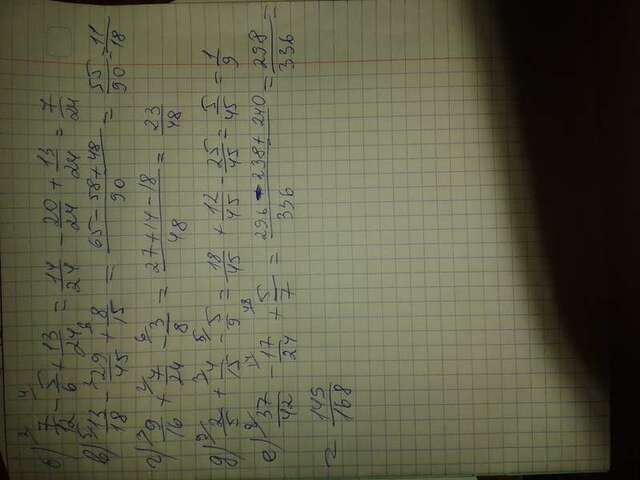 б) 7/12 - 5/6 + 13/24 = 14/24 - 20/24 + 13/24 = 7/24
в) 13/18 - 29/45 + 8/15 = (65-58+48)/90 = 55/90 = 11/18
г) 9/16 + 7/24 - 3/8 = (27+14-18)/48 = 23/48
д) 2/5 + 4/15 - 5/9 = 18/45 + 12/45 - 25/45 = 5/45 = 1/9
е) 37/42 - 17/24 + 5/7 = (296 - 238 + 240)/336 = 298/336 =
= 149/168